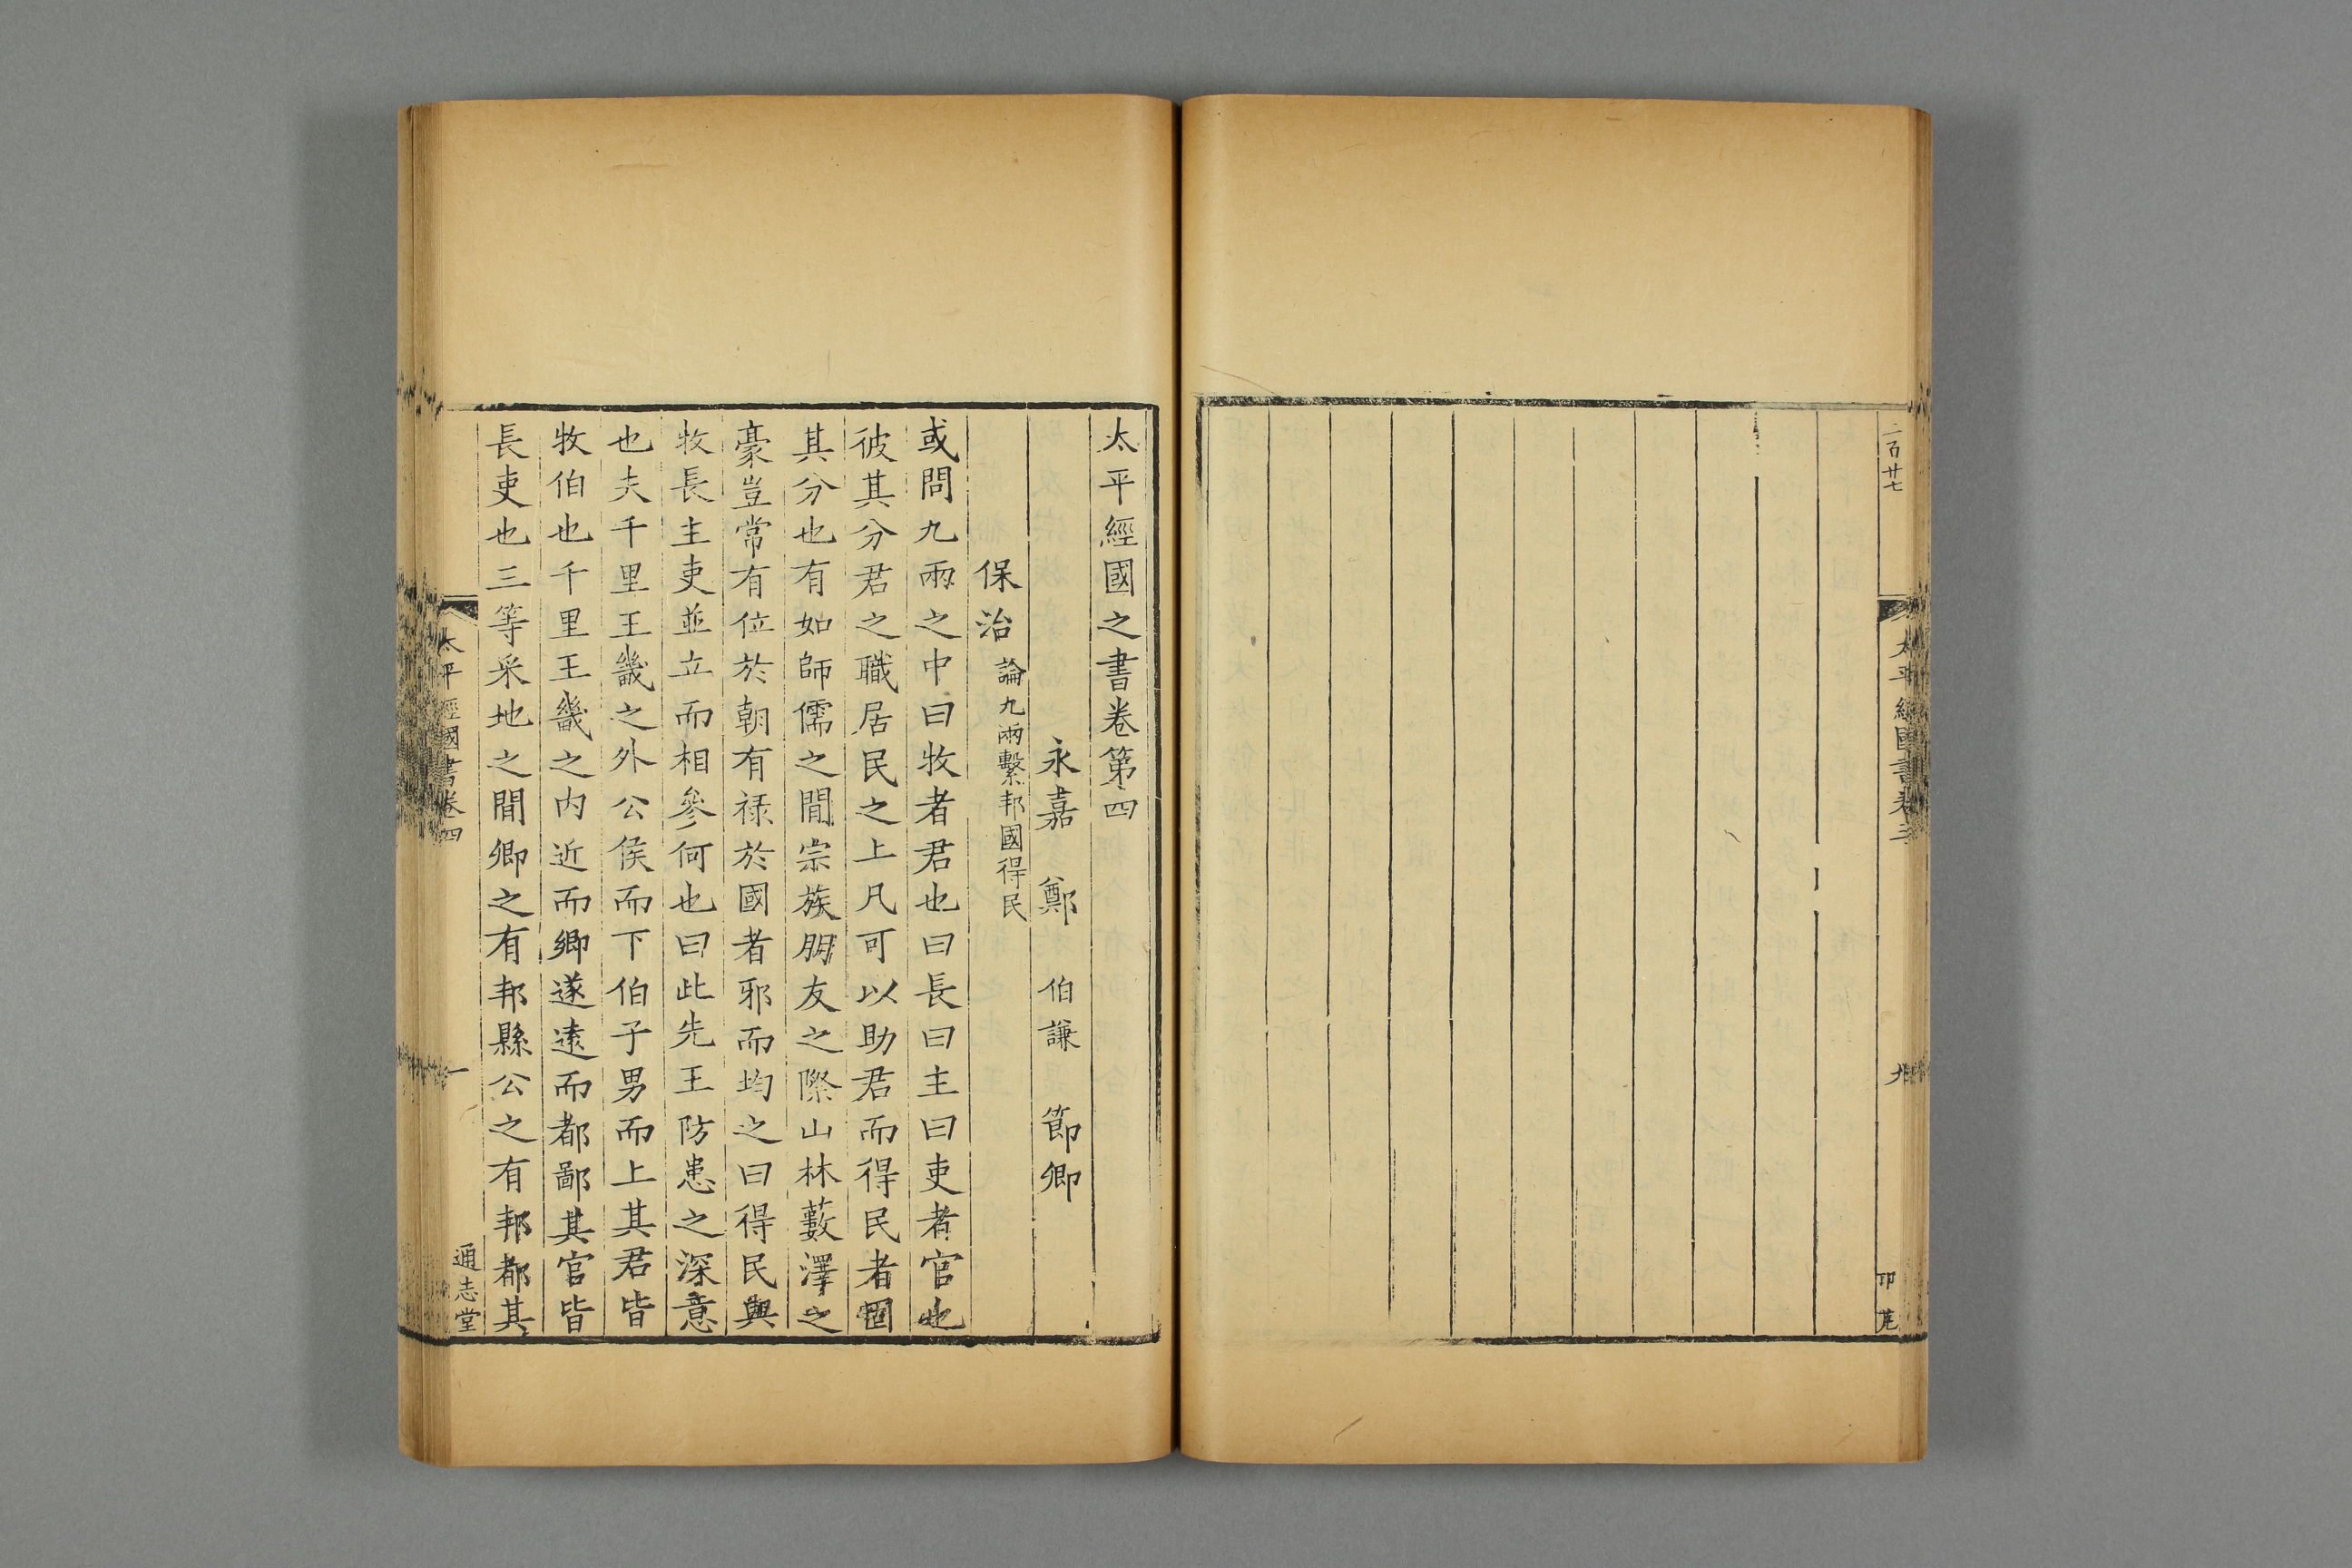 二百廿七
太平經國書卷三
九
太平經國之書卷第四
永嘉 鄭 伯謙 節卿
保治 論九兩繫邦國得民
或問九兩之中曰牧者君也曰長曰主曰吏者官也
彼其分君之職居民之上凡可以助君而得民者固
其分也有如師儒之間宗族朋友之際山林藪澤之
豪豈常有位於朝有祿於國者邪而均之曰得民與
牧長主吏並立而相參何也曰此先王防患之深意
也夫千里王畿之外公侯而下伯子男而上其君皆
牧伯也千里王畿之内近而鄉遂遠而都鄙其官皆
長吏也三等采地之間卿之有邦縣公之有邦都其
太平經國書卷四
一
通志堂